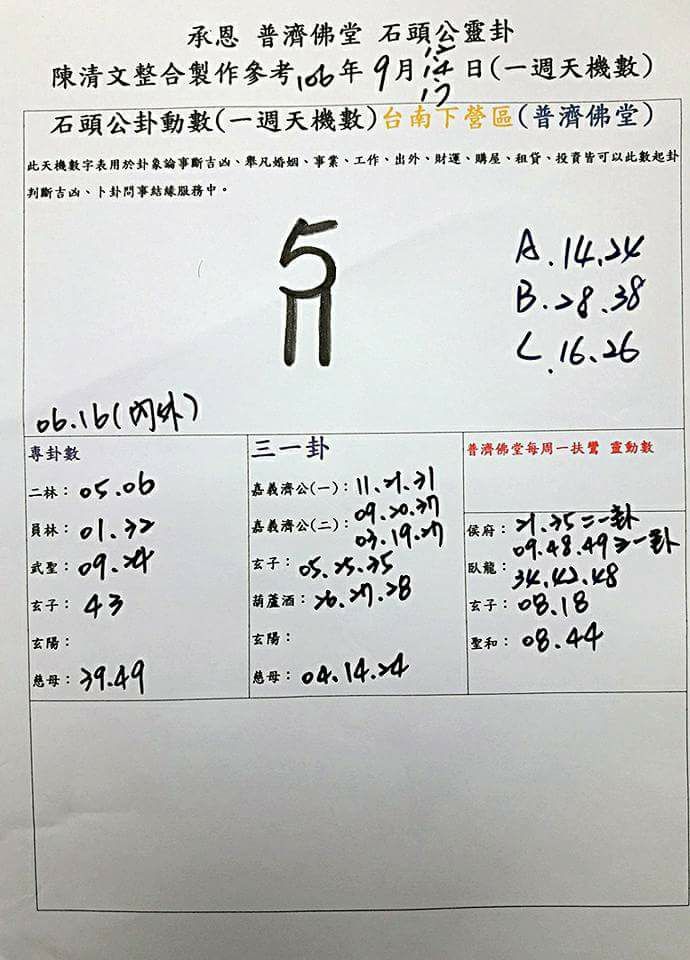 承恩 普濟佛堂 石頭公靈卦
陳清文整合製作參考106年9月12.14.17日(一週天機數)
石頭公卦動數(一週天機數)台南下營區(普濟佛堂)
此天機數字表用於卦象論事斷吉凶、舉凡婚姻、事業、工作、出外、財運、購屋、租貸、投資皆可以此數起卦
判斷吉凶、卜卦問事結緣服務中。
5
A.14.24
B.28.38
C.16.26
06.16(內外)
專卦數
二林：05.06
員林：01.32
武聖：09.24
玄子：43
玄陽：
慈母：39.49
三一卦
嘉義濟公(一)：11.21.31
09.20.37
嘉義濟公(二)：03.19.27
玄子：05.25.35
葫蘆酒：26.27.28
玄陽：
慈母：04.14.24
普濟佛堂每周一扶鸞 靈動數
侯府：21.35二一卦
09.48.49三一卦
臥龍：34.42.48
玄子：08.18
聖和：08.44